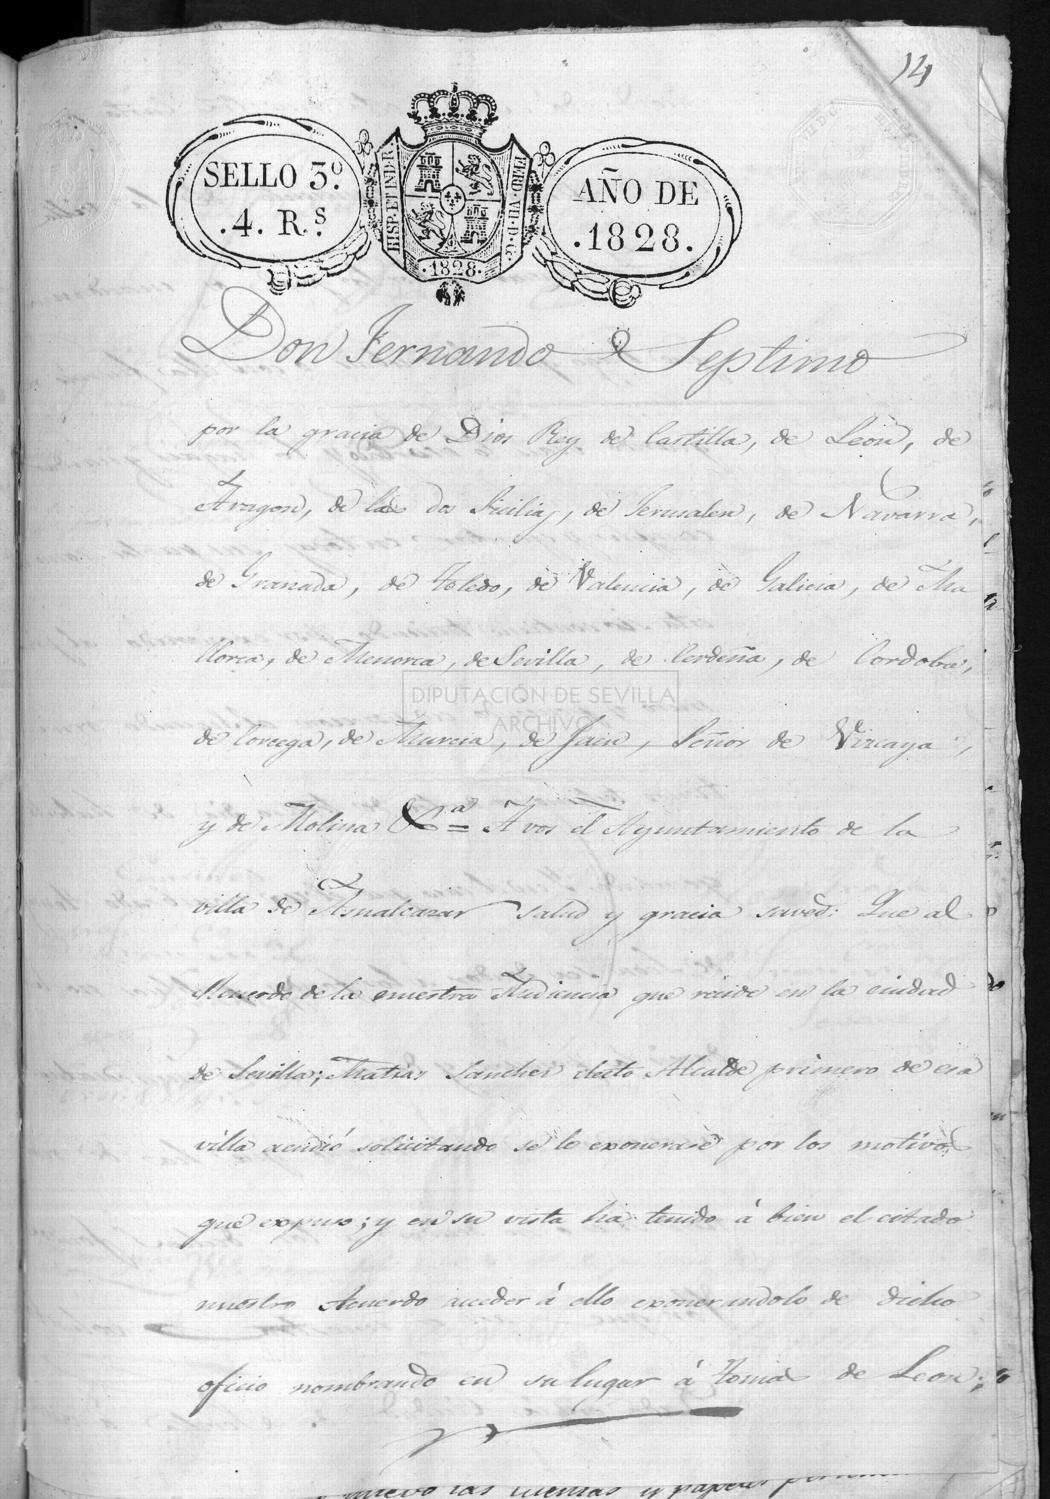 14
SELLO 3º.
.4. R.s
HISP. ET IND. R.
FERD. VII. D. G.
.1828.
AÑO DE
.1828.
Don Fernando Septimo
por la gracia de Dios Rey de Castilla, de Leon, de
Aragon, de las dos Sicilias, de Jerusalen, de Navarra,
de Granada, de Toledo, de Valencia, de Galicia, de Ma
llorca, de Menorca, de Sevilla, de Cerdeña, de Cordoba,
DIPUTACIÓN DE SEVILLA
ARCHIVO
de Corcega, de Murcia, de Jaen, Señor de Vizcaya,
y de Molina &ª = A vos el Ayuntamiento de la
villa de Asnalcazar salud y gracia saved: Que al
Acuerdo de la nuestra Audiencia que recide en la ciudad
de Sevilla; Matias Sanchez electo Alcalde primero de esa
villa acudió solicitando se le exonerase por los motivos
que expuso; y en su vista ha tenido á bien el citado
nuestro Acuerdo acceder á ello exonerandolo de dicho
oficio nombrando en su lugar á Tomas de Leon;
nuevo las cuentas y papeles